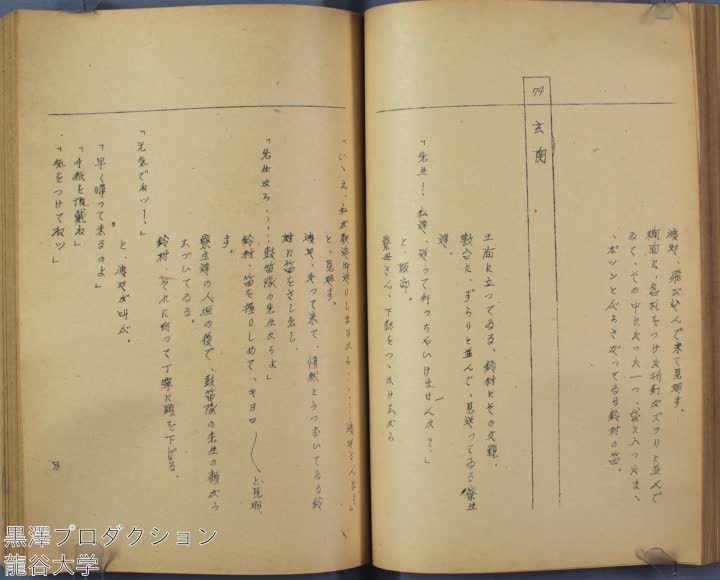 渡辺、飛び込んで来て見廻す。
横面に、名札をつけた折釘がズラリと並んで
ゐて、その中にたった一つ、袋に入ったまゝ
ポツンとぶらさがってゐる鈴村の笛。
74 玄関
土間に立ってゐる、鈴村とその父親。
敷台に、ずらりと並んで、見送ってゐる寮生
達。
「先生！ 私達、送って行っちゃいけませんか？」
と、服部。
寮母さん、下駄をつゝかけながら
「いゝえ、私が駅迄御送りしますから……渡辺さんは？」
と、見廻す。
渡辺、走って来て、悄然とうつむいてゐる鈴
村に笛をさし出し、
「先生から……鼓笛隊の先生からよ」
鈴村、笛を握りしめて、キョロ〳〵と見廻
す。
寮生達の人垣の後で、鼓笛隊の先生の顔がう
なづいてゐる。
鈴村、それに向って丁寧に頭を下げる。
「元気でねッ！」
と、渡辺が叫ぶ。
「早く帰って来るのよ」
「手紙を頂戴ね」
「気をつけてねッ」
黒澤プロダクション
龍谷大学